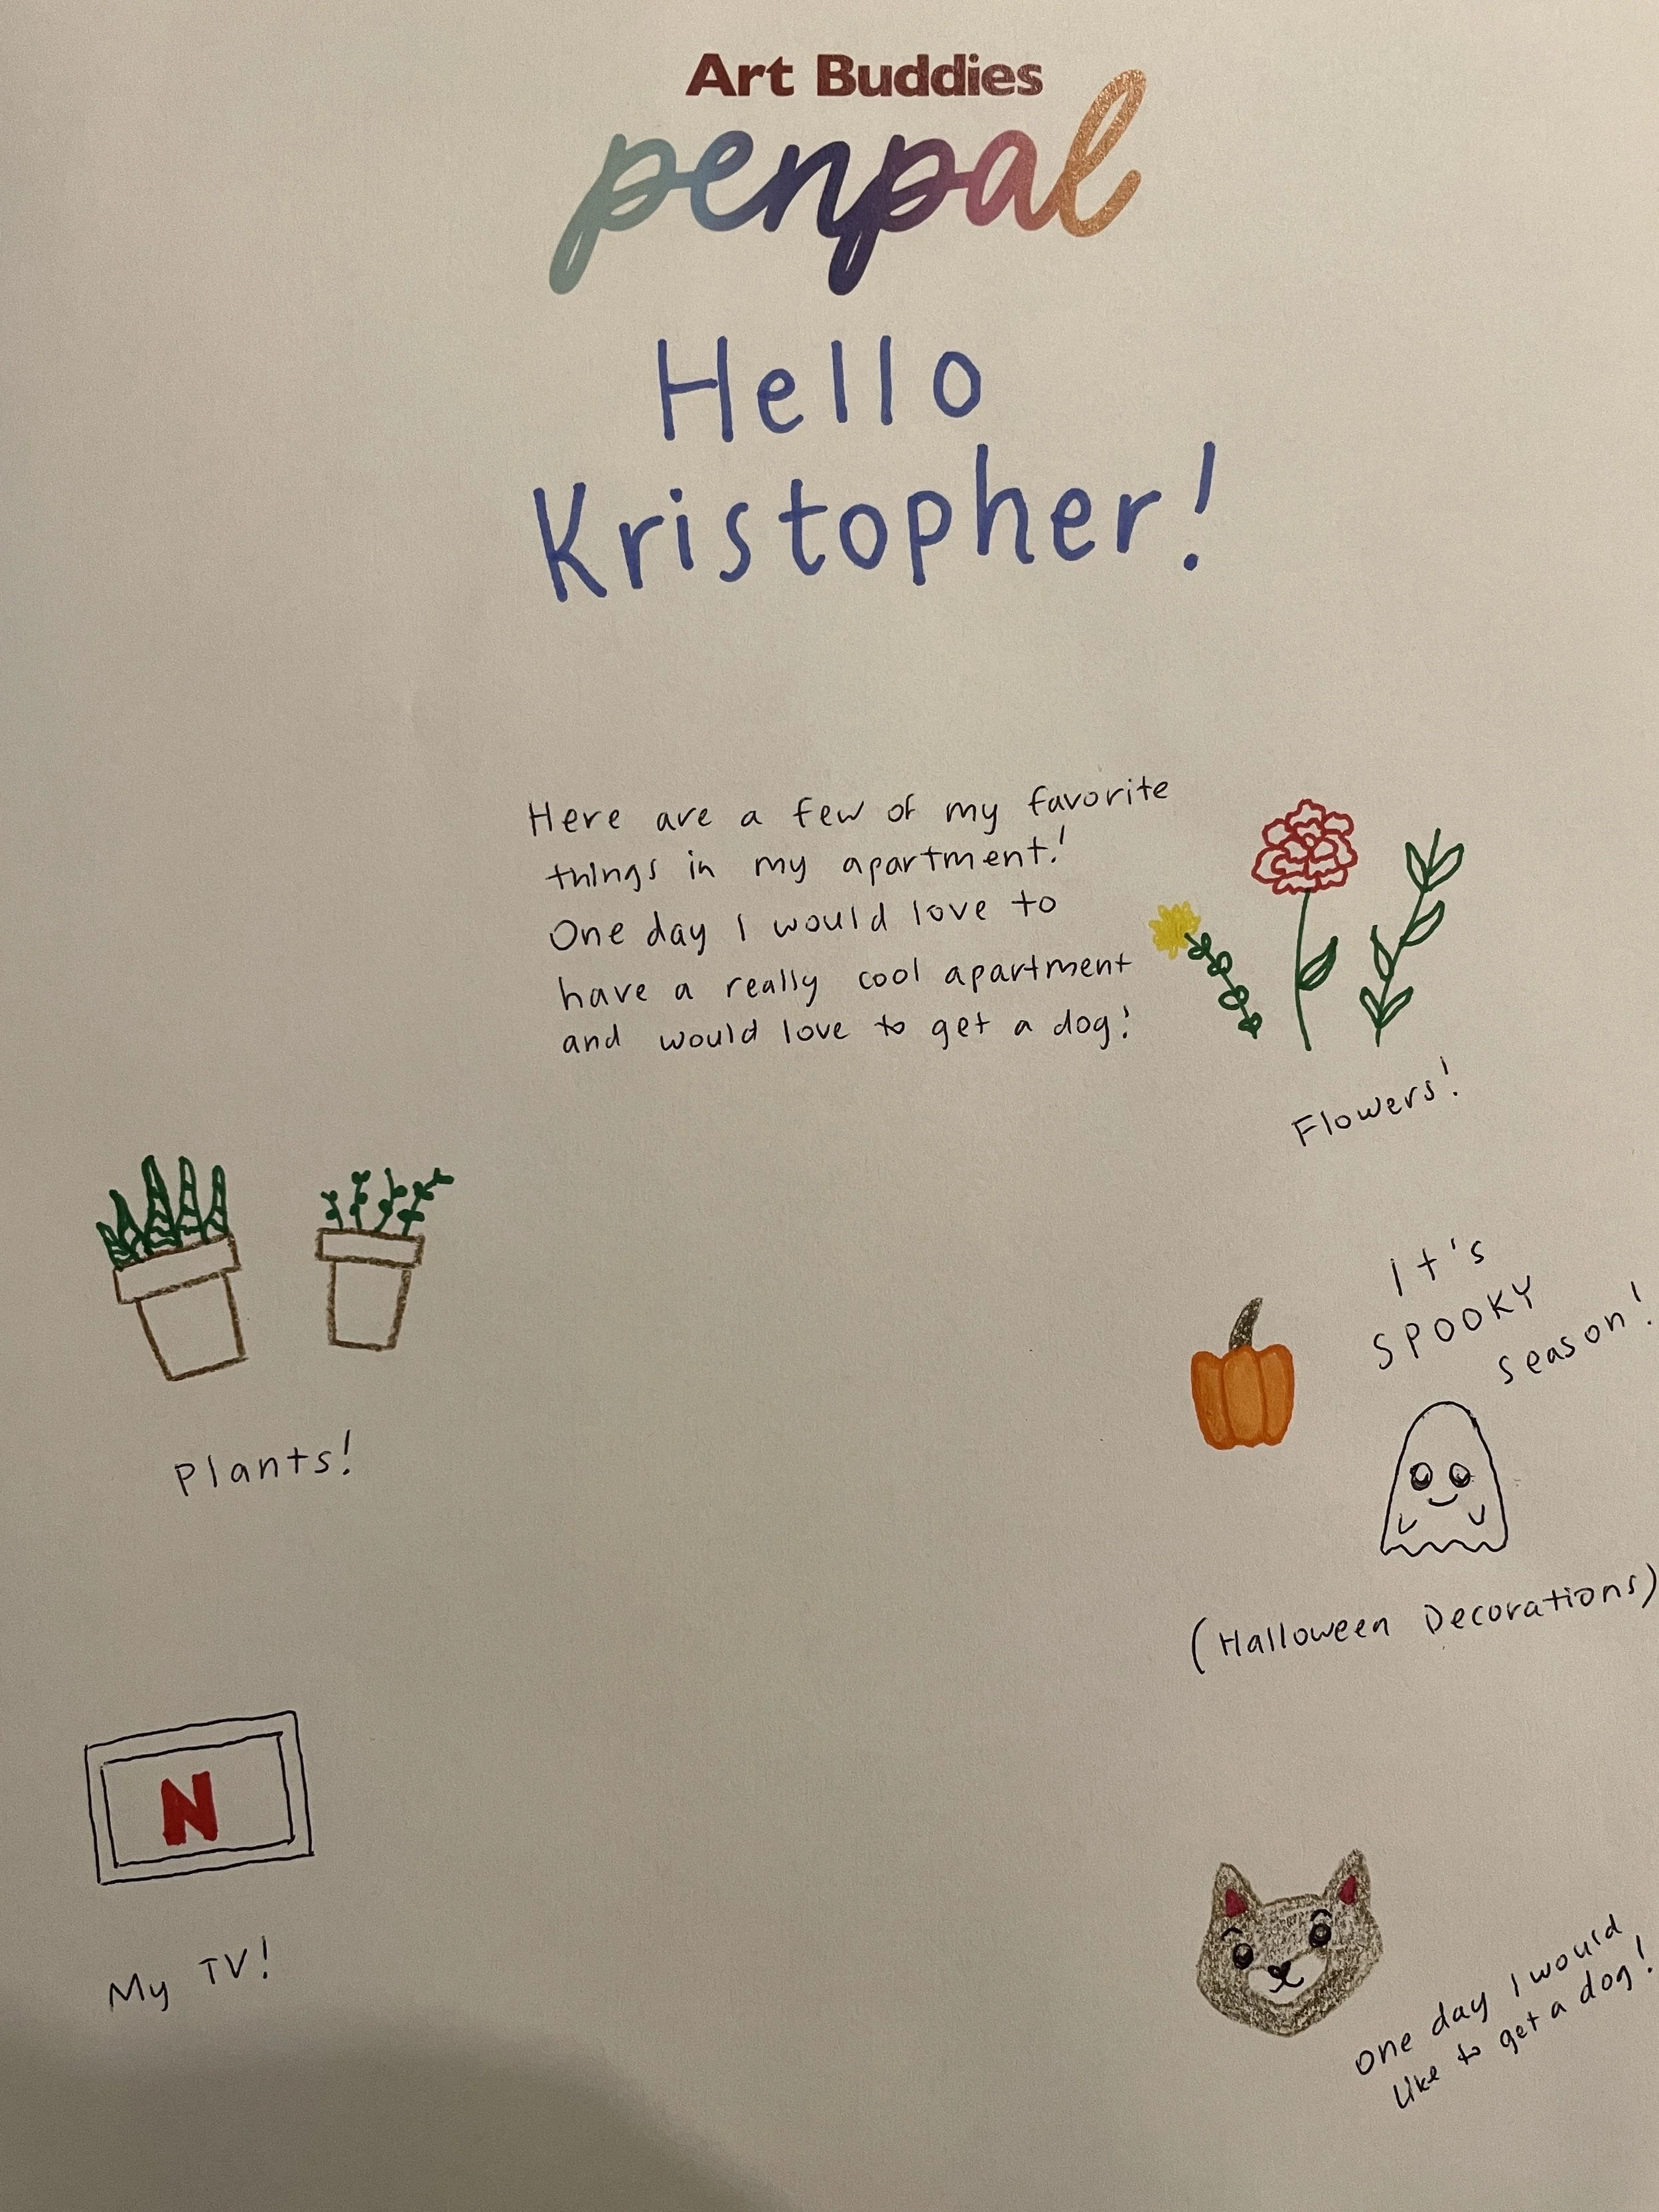 Art Buddies
penpal
Hello
Kristopher!
Here are a few of my favorite
things in my apartment!
One day I would love to
have a really cool apartment
and would love to get a dog!
Flowers!
Plants!
It's
SPOOKY
season!
(Halloween Decorations)
N
My TV!
One day I would
like to get a dog!